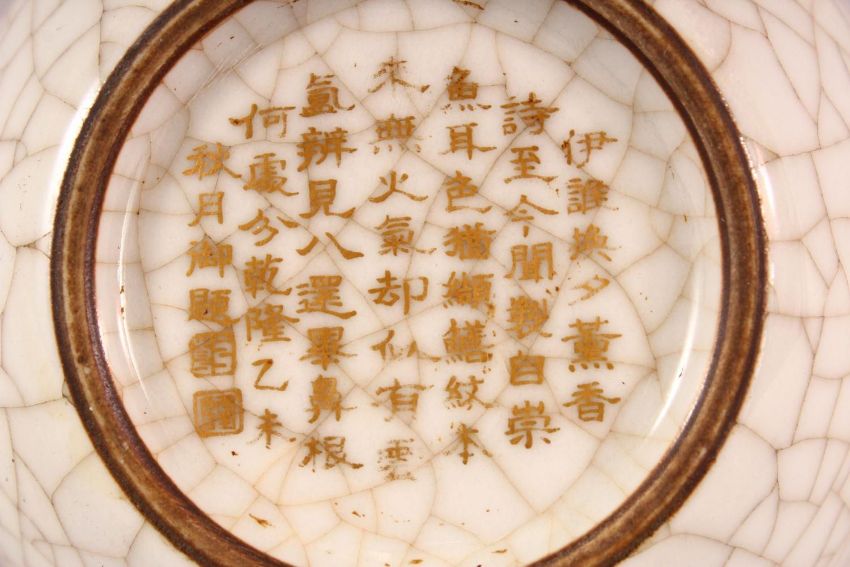 伊誰換夕薰香
詩至今聞製自崇
魚耳色猶纈鱔紋本
來無火氣却似有
氳辨見八還畢鼻根
何處分乾隆乙未
秋月御題